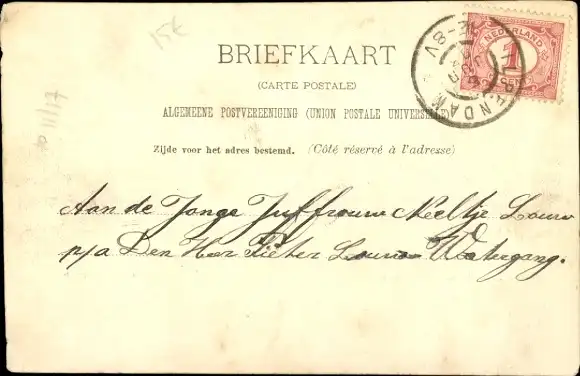 15€
BRIEFKAART
(CARTE POSTALE)
ALGEMEENE POSTVEREENIGING (UNION POSTALE UNIVERSELLE)
Zijde voor het adres bestemd. (Côté réservé à l'adresse)
NEDERLAND
1
CENT
8-V
NDAM
Aan de Jonge Juffrouw Neeltje Louw
p/a Den Heer Pieter Louw Watergang.